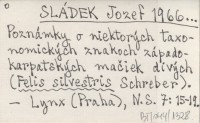 SLÁDEK Jozef 1966...
Poznámky o niektorých taxo-
nomických znakoch západo-
karpatských mačiek divých
(Felis silvestris Schreber).
- Lynx (Praha), N.S. 7: 15-19.